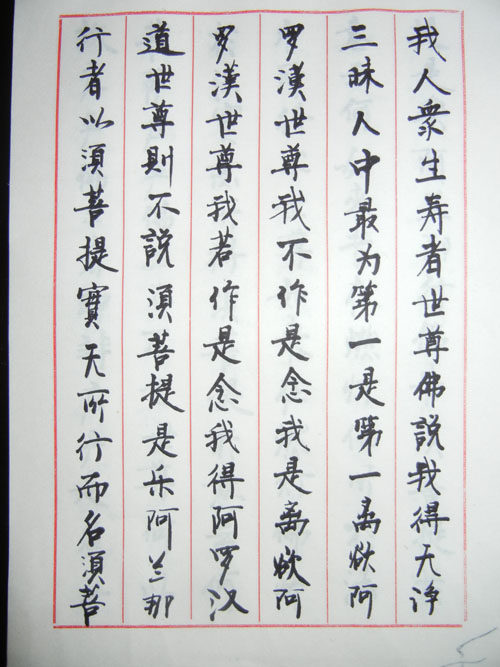 我人衆生寿者世尊佛説我得无诤
三昧人中最为第一是第一离欲阿
罗漢世尊我不作是念我是离欲阿
罗漢世尊我若作是念我得阿罗汉
道世尊則不説須菩提是乐阿兰那
行者以須菩提實无所行而名須菩